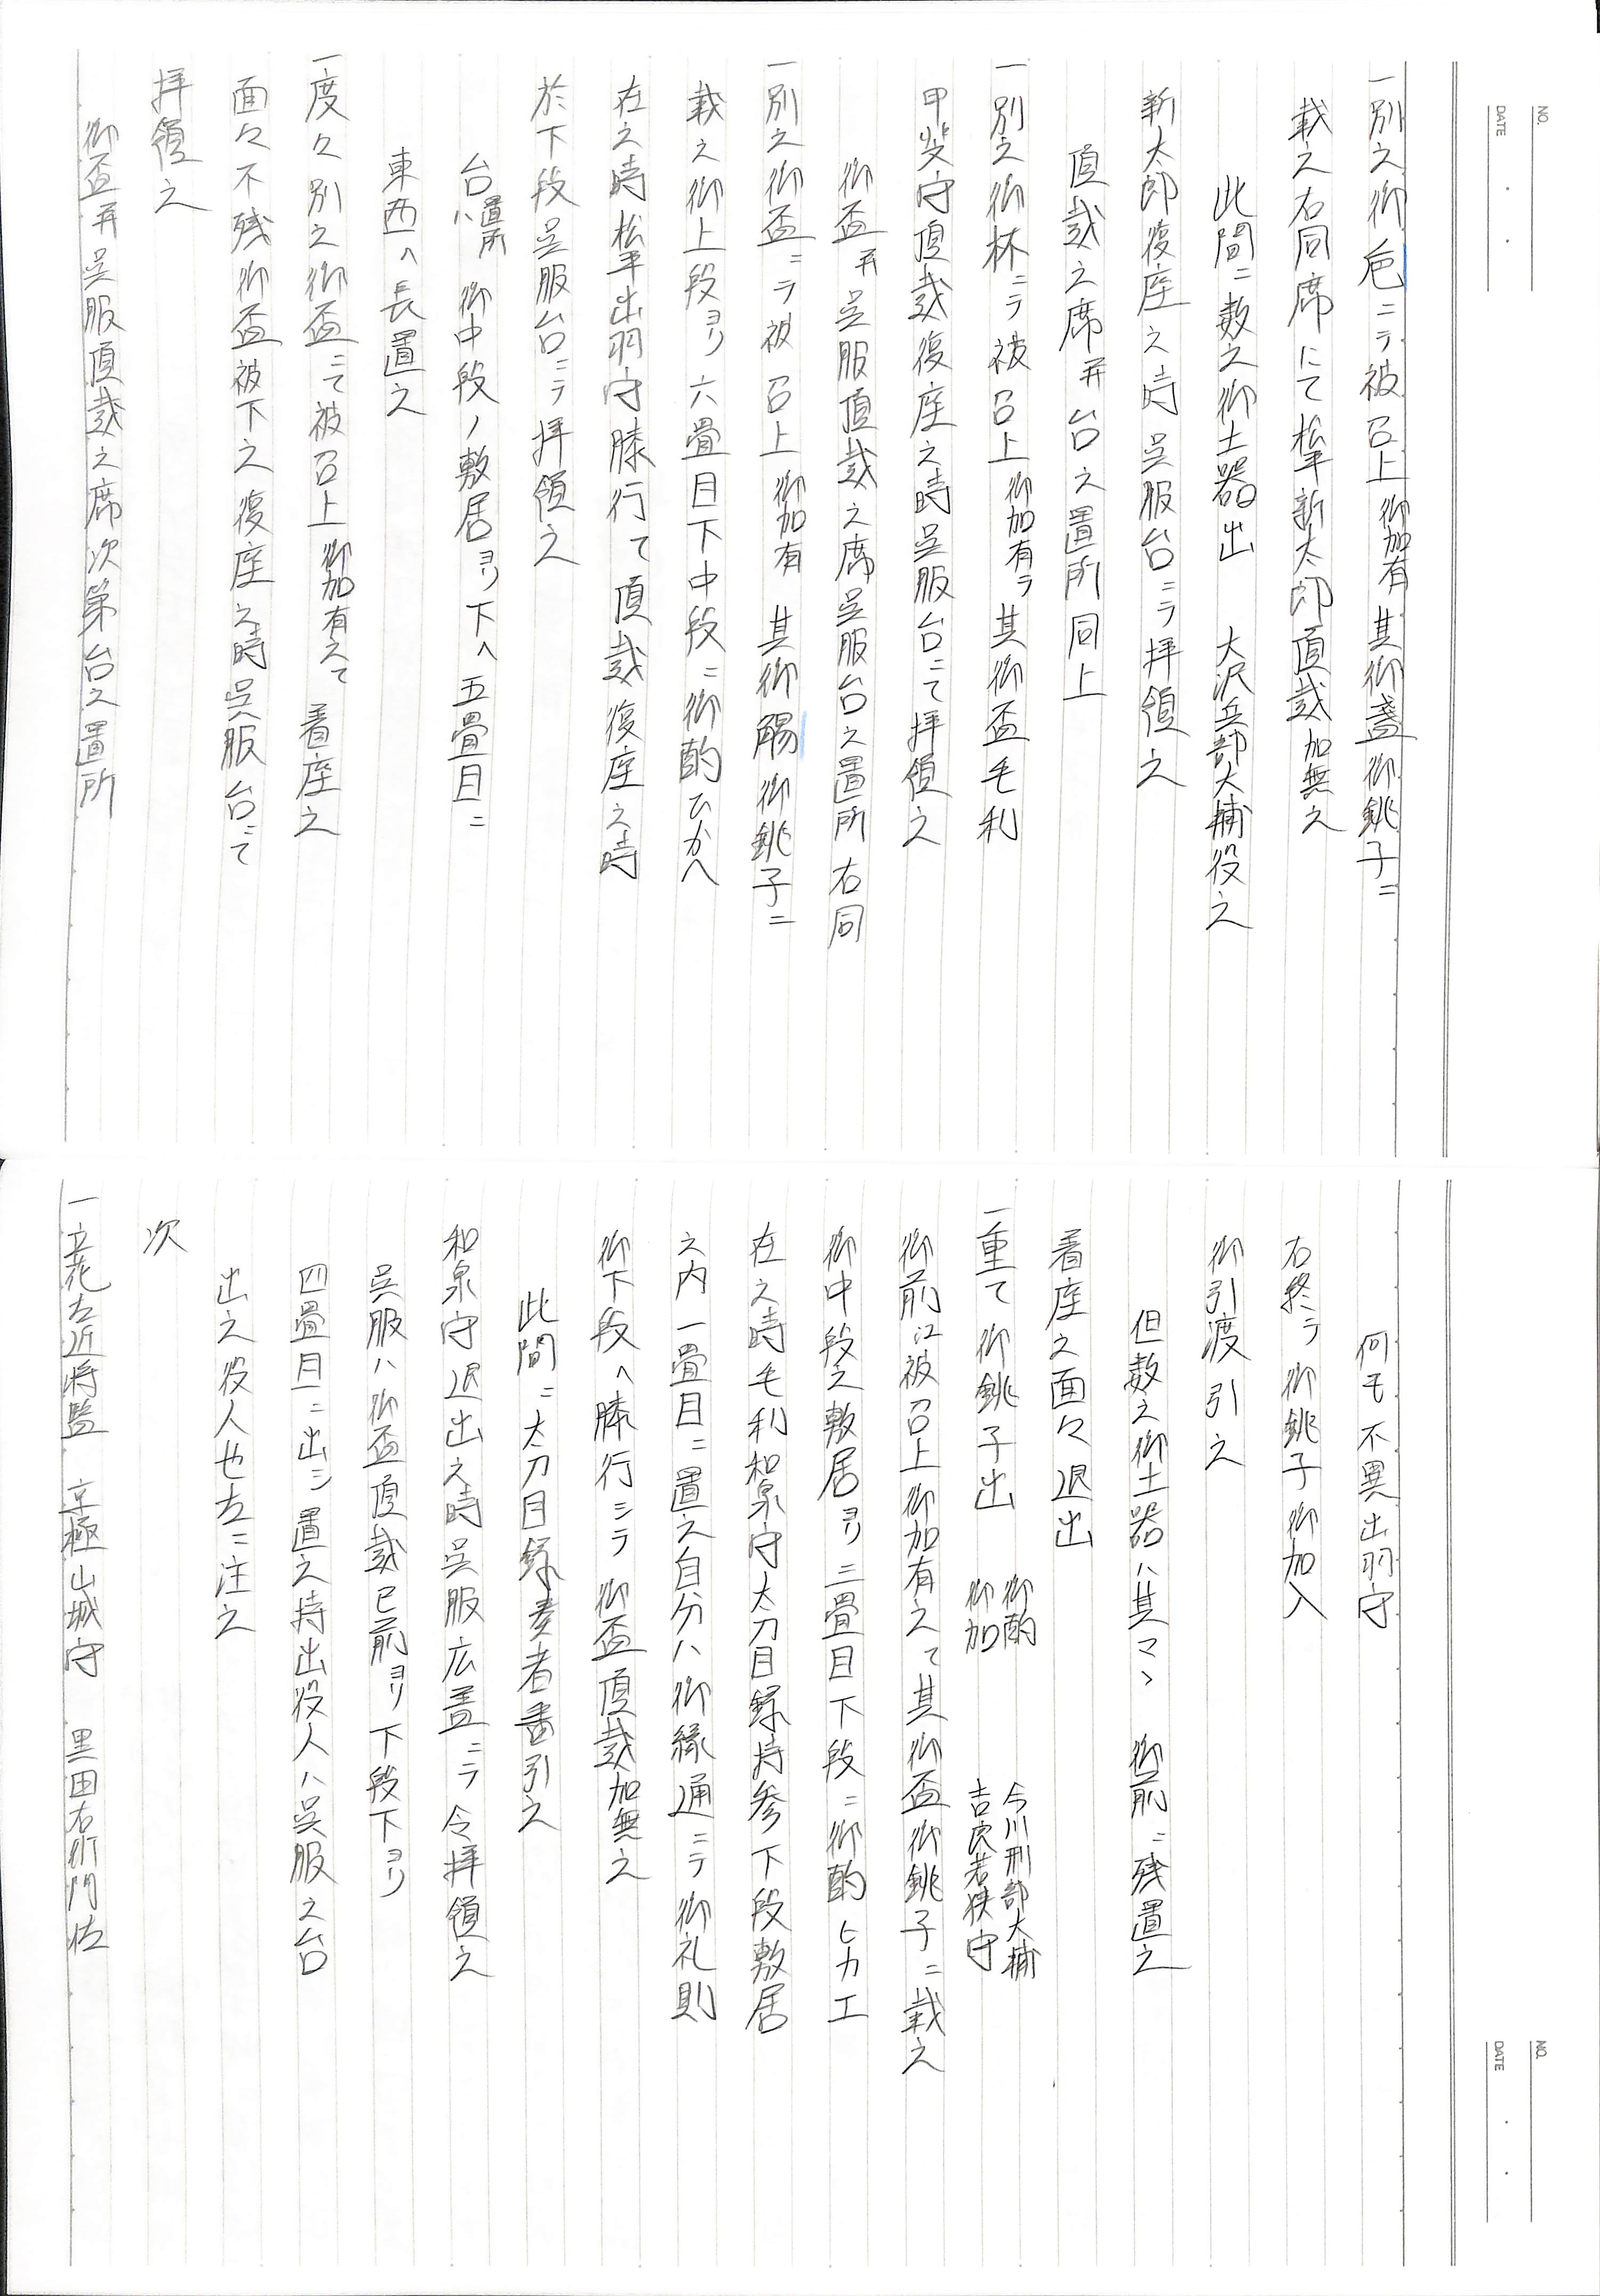 NO.
DATE
一別之御卮ニテ被召上御加有其御盞御銚子ニ
載之右同席にて松平新太郎頂戴加無之
此間ニ数之御土器出 大沢兵部大輔役之
新太郎復座之時呉服台ニテ拝領之
頂戴之席并台之置所同上
一別之御杯ニテ被召上御加有テ其御盃毛利
甲斐守頂戴復座之時呉服台ニて拝領之
御盃并呉服頂戴之席呉服台之置所右同
一別之御盃ニテ被召上御加有其御觴御銚子ニ
載之御上段ヨリ六畳目下中段ニ御酌ひかへ
在之時松平出羽守膝行て頂戴復座之時
於下段呉服台ニテ拝領之
台置所ハ御中段ノ敷居ヨリ下へ五畳目ニ
東西へ長置之
一度々別之御盃ニて被召上御加有之て着座之
面々不残御盃被下之復座之時呉服台ニて
拝領之
御盃并呉服頂戴之席次第台之置所
NO.
DATE
何モ不異出羽守
右終テ御銚子御加入
御引渡引之
但数之御土器ハ其マヽ御前ニ残置之
着座之面々退出
一重て御銚子出 御酌 今川刑部大輔
御加 吉良若狭守
御前江被召上御加有之て其御盃御銚子ニ載之
御中段之敷居ヨリ三畳目下段ニ御酌ヒカエ
在之時毛利和泉守太刀目録持参下段敷居
之内一畳目ニ置之自分ハ御縁通ニテ御礼則
御下段へ膝行シテ御盃頂戴加無之
此間ニ太刀目録奏者番引之
和泉守退出之時呉服広蓋ニテ令拝領之
呉服ハ御盃頂戴已前ヨリ下段下ヨリ
四畳目ニ出シ置之持出役人ハ呉服之台
出之役人也左ニ注之
次
一立花左近将監 京極山城守 黒田右衛門佐